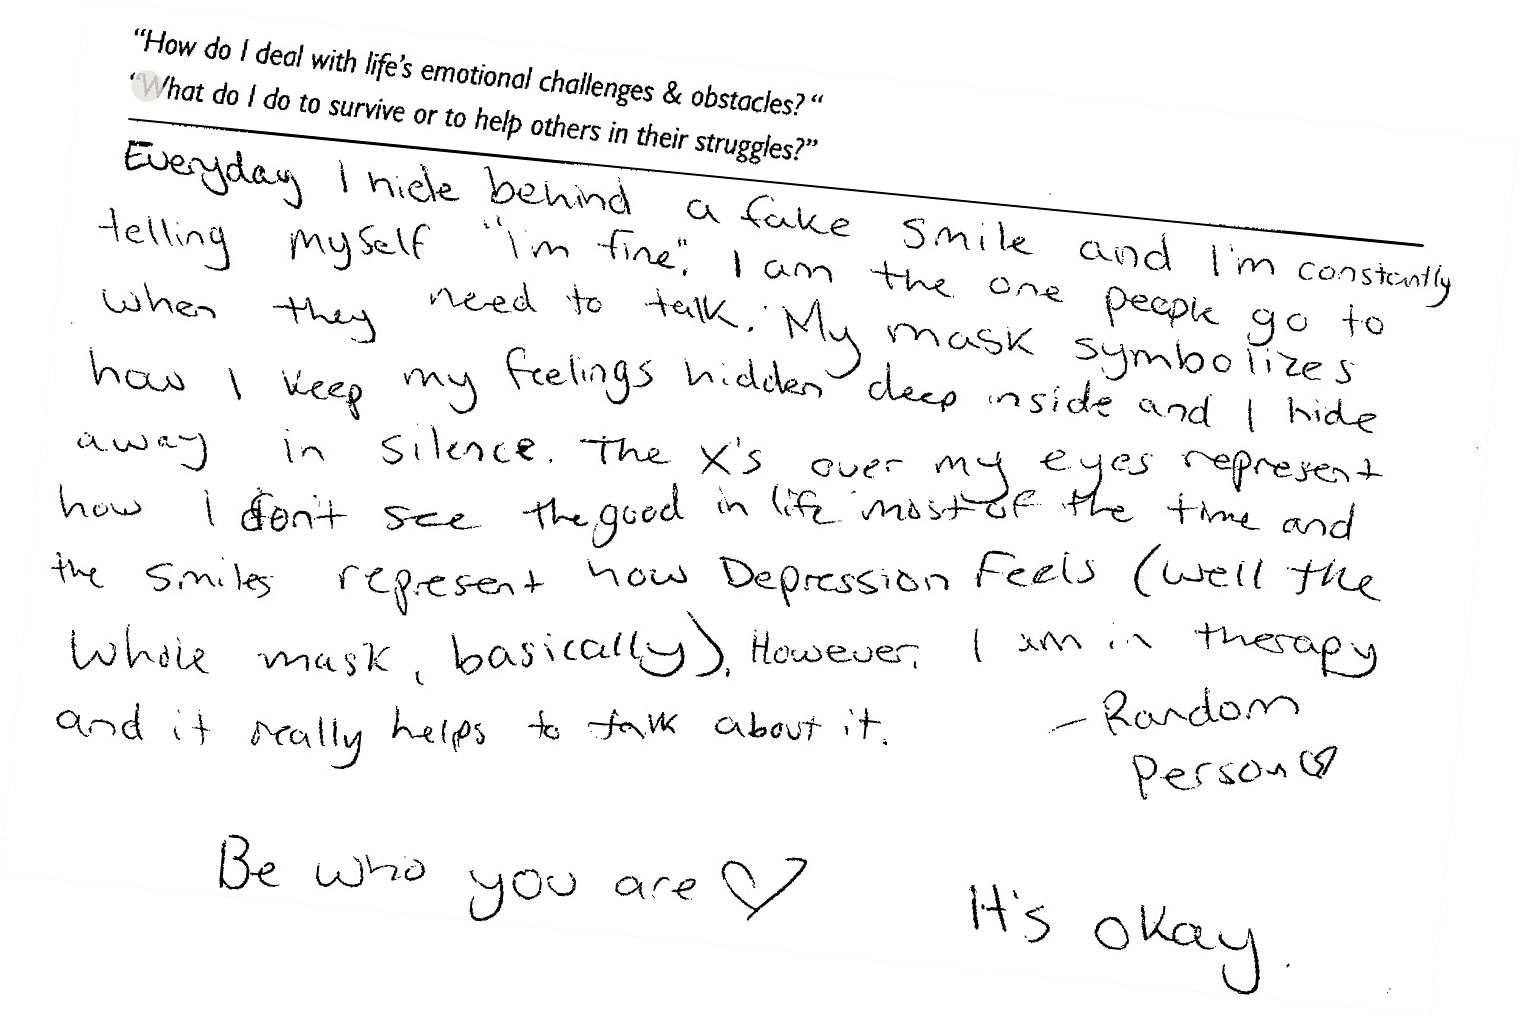 “How do I deal with life’s emotional challenges & obstacles? “
‘What do I do to survive or to help others in their struggles?”
Everyday I hide behind a fake smile and I'm constantly
telling myself "I'm fine". I am the one people go to
when they need to talk. My mask symbolizes
how I keep my feelings hidden deep inside and I hide
away in silence. The X's over my eyes represent
how I don't see the good in life most of the time and
the smiles represent how Depression Feels (well the
whole mask, basically). However, I am in therapy
and it really helps to talk about it. – Random
Person ♡
Be who you are ♡
It's okay.